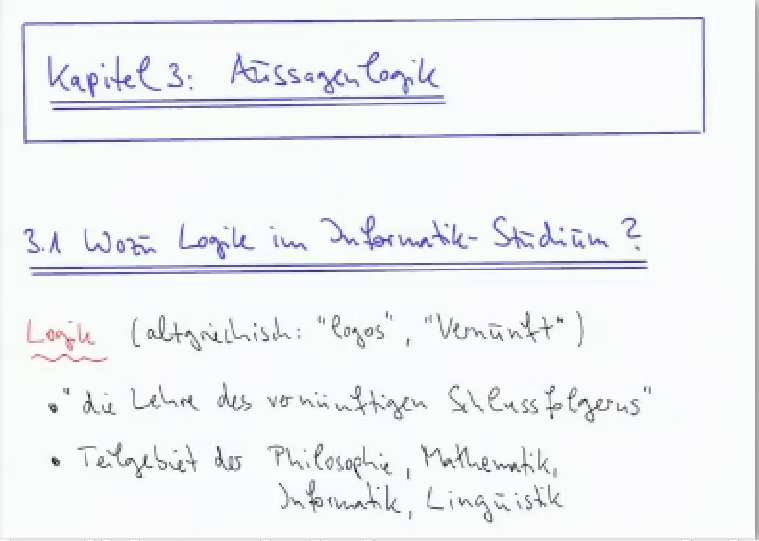 Kapitel 3: Aussagenlogik
3.1 Wozu Logik im Informatik-Studium?
Logik (altgriechisch: "logos", "Vernunft")
• "die Lehre des vernünftigen Schlussfolgerns"
• Teilgebiet der Philosophie, Mathematik,
Informatik, Linguistik